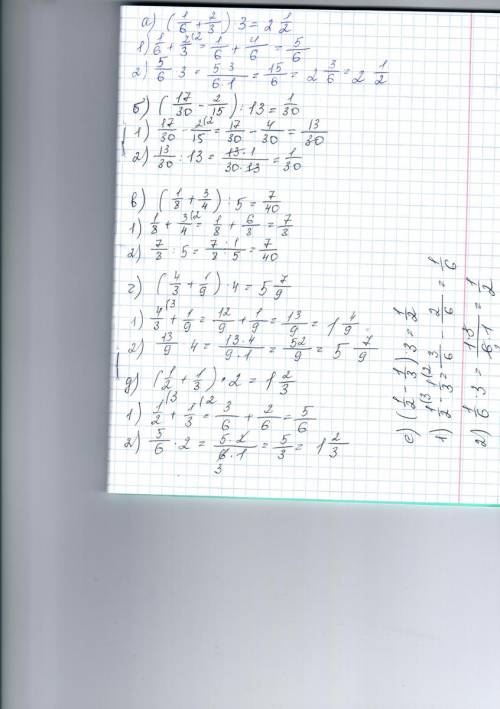 а) (1/6 + 2/3) 3 = 2 1/2
1) 1/6 + 2/3 (2 = 1/6 + 4/6 = 5/6
2) 5/6 · 3 = 5 3/6·1 = 15/6 = 2 3/6 = 2 1/2
б) (17/30 - 2/15) : 13 = 1/30
1) 17/30 - 2/15 (2 = 17/30 - 4/30 = 13/30
2) 13/30 : 13 = 13·1/30·13 = 1/30
в) (1/8 + 3/4) : 5 = 7/40
1) 1/8 + 3/4 (2 = 1/8 + 6/8 = 7/8
2) 7/8 : 5 = 7·1/8·5 = 7/40
г) (4/3 + 1/9) · 4 = 5 7/9
1) 4/3 (3 + 1/9 = 12/9 + 1/9 = 13/9 = 1 4/9
2) 13/9 · 4 = 13·4/9·1 = 52/9 = 5 7/9
д) (1/2 + 1/3) · 2 = 1 2/3
1) 1/2 (3 + 1/3 (2 = 3/6 + 2/6 = 5/6
2) 5/6 · 2 = 5·2/6·1 = 5/3 = 1 2/3
3
е) (1/2 - 1/3) 3 = 1/2
1) 1/2 (3 - 1/3 (2 = 3/6 - 2/6 = 1/6
2) 1/6 · 3 = 1·3/6·1 = 1/2